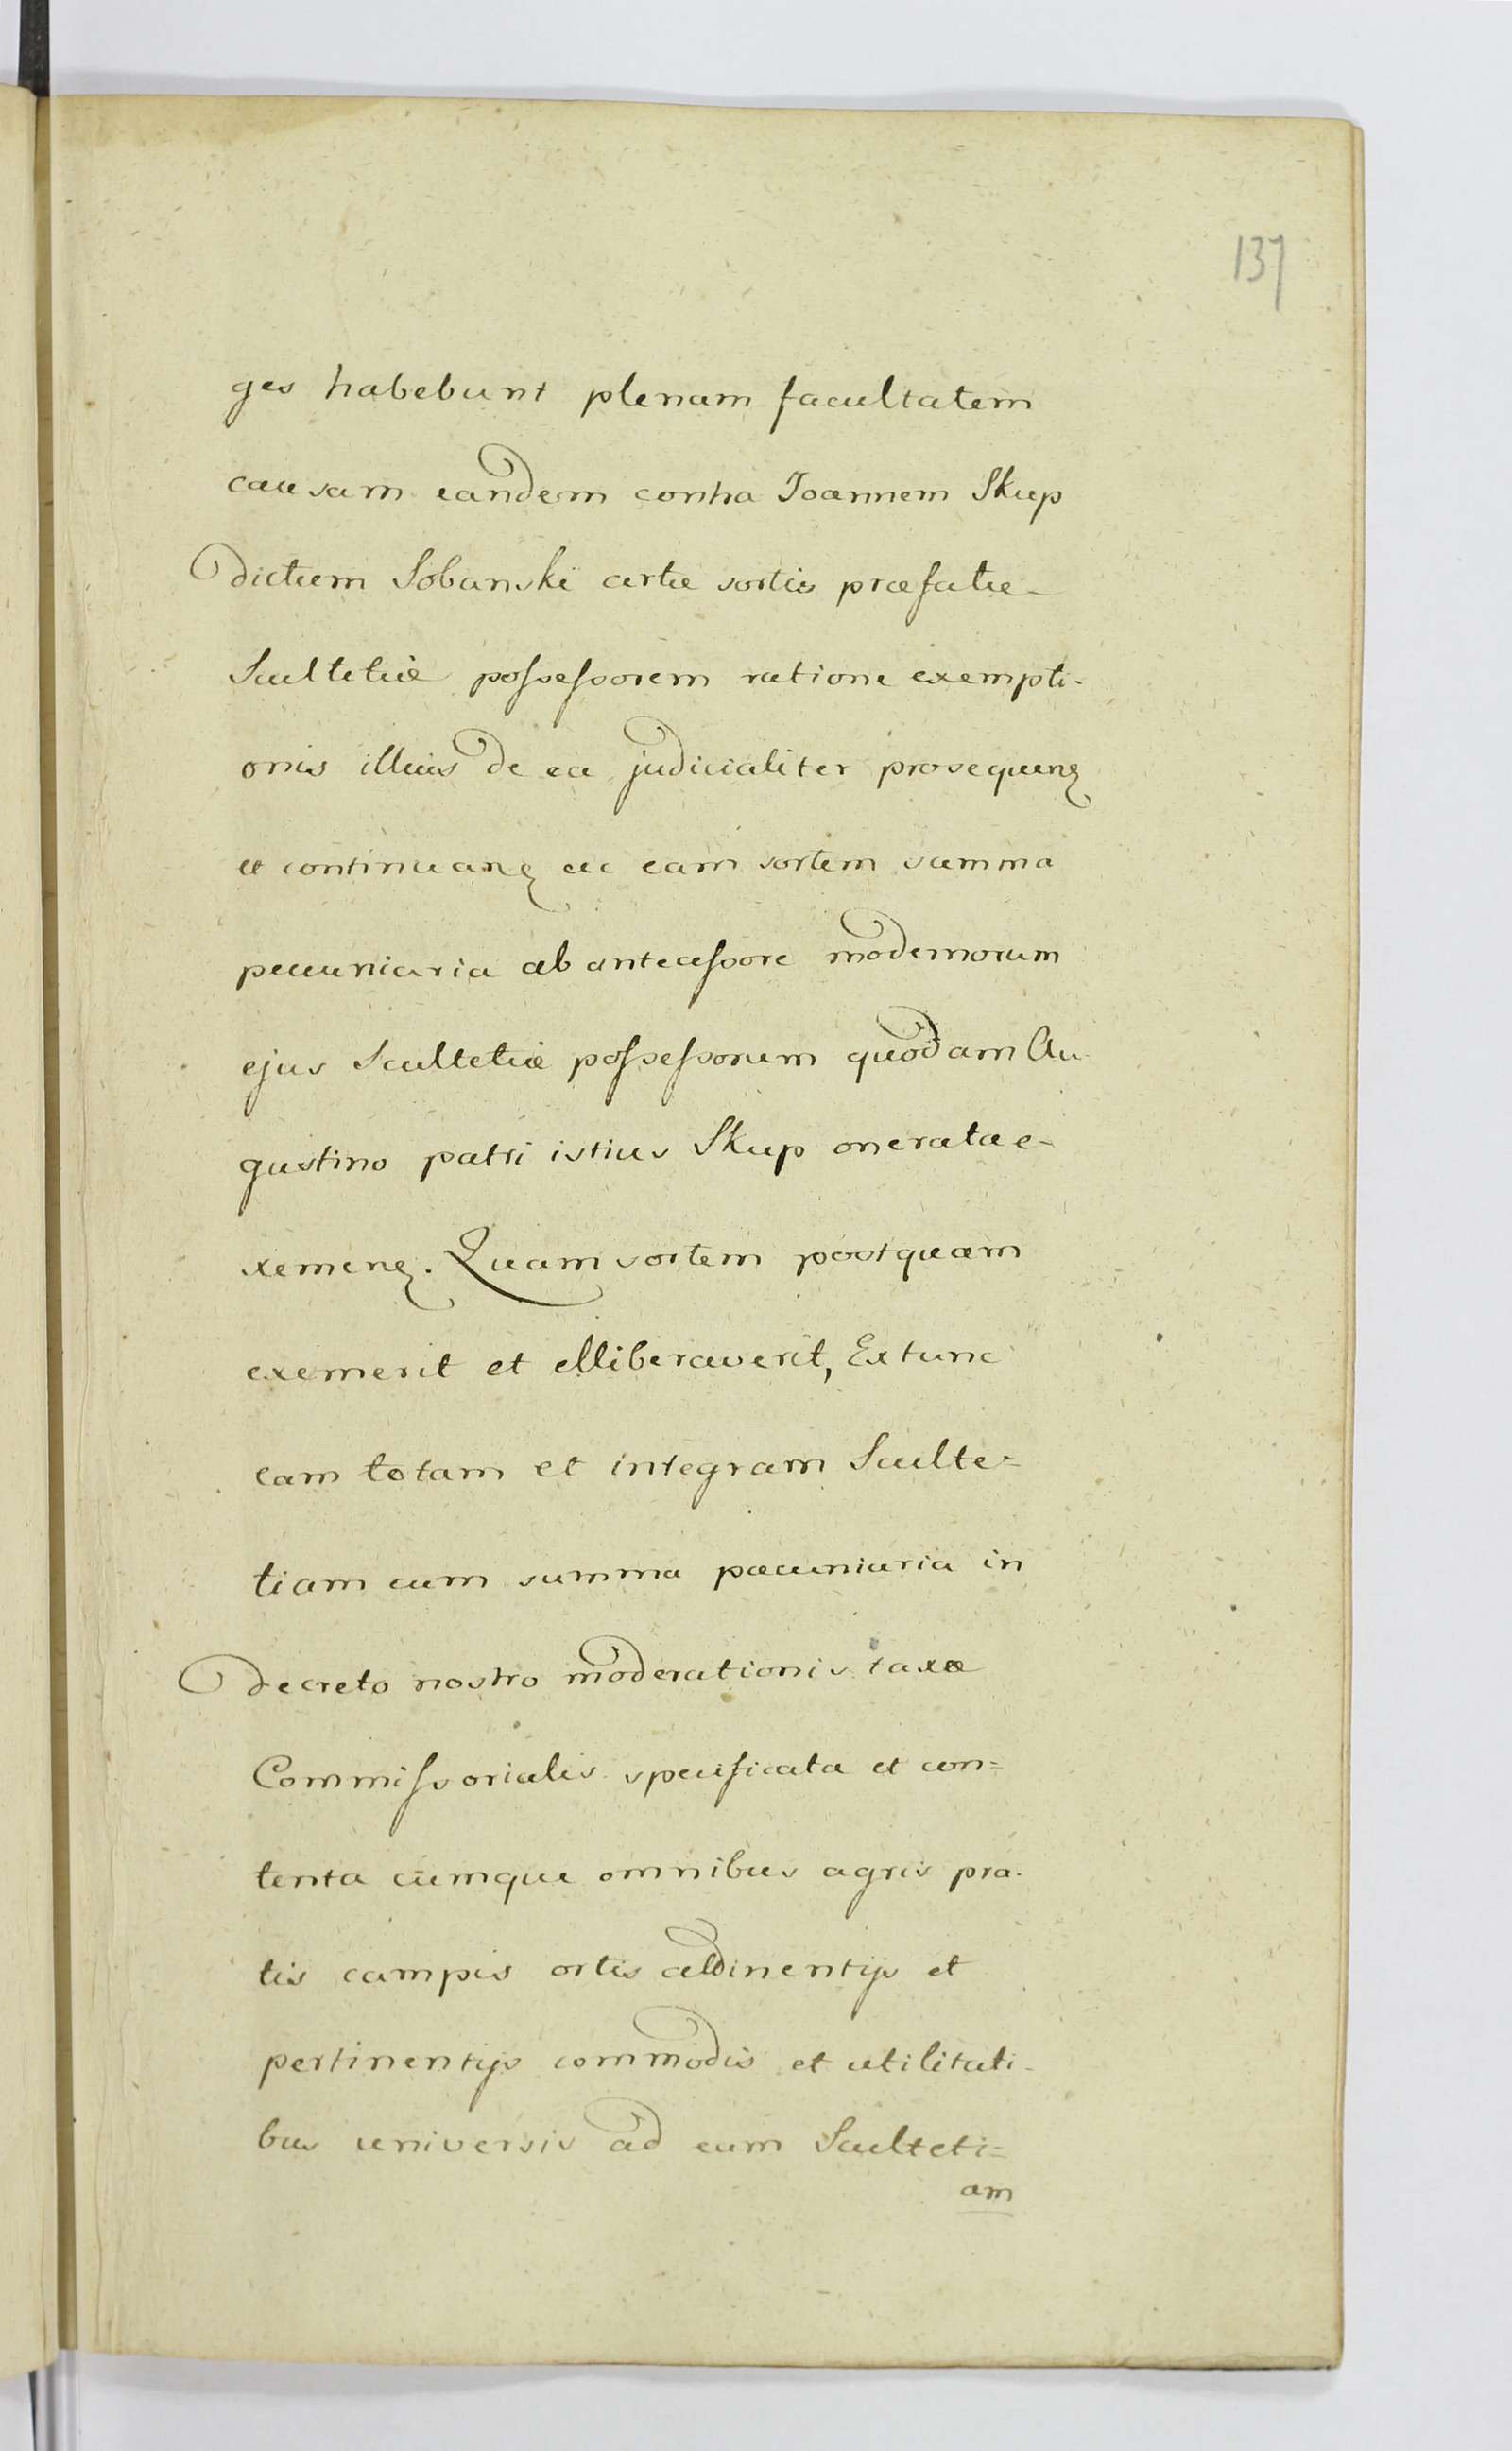 137
ges habebunt plenam facultatem
causam eandem contra Joannem Skup
dictum Sobanski certæ sortis præfatæ
Scultetiæ possessorem ratione exempti-
onis illius de ea judicialiter prosequenz
et continuanz ac eam sortem summa
pecuniaria ab antecessore modernorum
ejus Scultetiæ possessorum quodam Au-
gustino patri istius Skup onerata e-
xemenz. Quam sortem postquam
exemerit et elliberaverit, Extunc
eam totam et integram Sculte=
tiam cum summa pæcuniaria in
Decreto nostro moderationis taxæ
Commissorialis specificata et con=
tenta cùmque omnibus agris pra-
tis campis ortis addinentijs et
pertinentijs commodis et utilitati-
bus universis ad eum Sculteti=
am